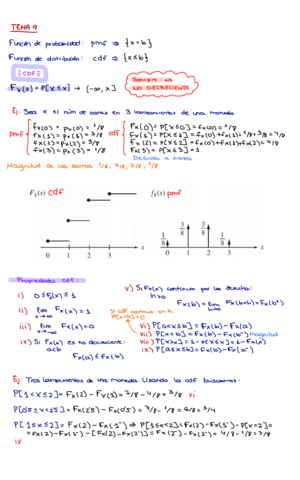 TEMA 9
Función de probabilidad: pmf ⇒ {x=b}
Función de distribución: cdf ⇒ {x≤b}
¡CDF!
Fx(x) = P[X≤x] → (-∞, x]
Siempre es
NO DECRECIENTE
Ej: Sea X el núm de caras en 3 lanzamientos de una moneda.
pmf
fx(0) = px(0) = 1/8
fx(1) = px(1) = 3/8
fx(2) = px(2) = 3/8
fx(3) = px(3) = 1/8
cdf
Fx(0) = P[X≤0] = fx(0) = 1/8
Fx(1) = P[X≤1] = fx(0)+fx(1) = 1/8+3/8 = 4/8
Fx(2) = P[X≤2] = fx(0)+fx(1)+fx(2) = 7/8
Fx(3) = P[X≤3] = 1
Definida a trozos
Magnitud de los saltos: 1/8, 3/8, 3/8, 1/8.
FX(x) cdf
fX(x) pmf
1/8 3/8 3/8 1/8
0 1 2 3 x
0 1 2 3 x
Propiedades cdf:
i) 0≤Fx(x)≤1
ii) lim x→∞ Fx(x) = 1
iii) lim x→-∞ Fx(x) = 0
iv) Si Fx(x) es no decreciente:
a<b
Fx(a)≤Fx(b)
v) Si Fx(x) continua por la derecha:
h>0
Fx(b) = lim h→0 Fx(b+h) = Fx(b⁺)
Si cdf continua en b,
P[X=b]=0
vi) P[a<x≤b] = Fx(b) - Fx(a)
vii) P[X=b] = Fx(b) - Fx(b⁻) magnitud
viii) P[X>x] = 1 - P[X≤x] = 1 - Fx(x)
ix) P[a≤x≤b] = Fx(b) - Fx(a⁻)
Ej: Tres lanzamientos de una moneda. Usando la cdf buscamos:
P[1<x≤2] = Fx(2) - Fx(1) = 7/8 - 4/8 = 3/8 vi
P[0'5≤x<2'5] = Fx(2'5) - Fx(0'5) = 7/8 - 1/8 = 6/8 = 3/4